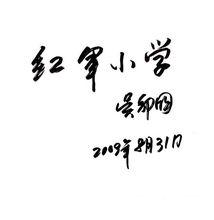 红军小学
吴邦国
2009年8月31日